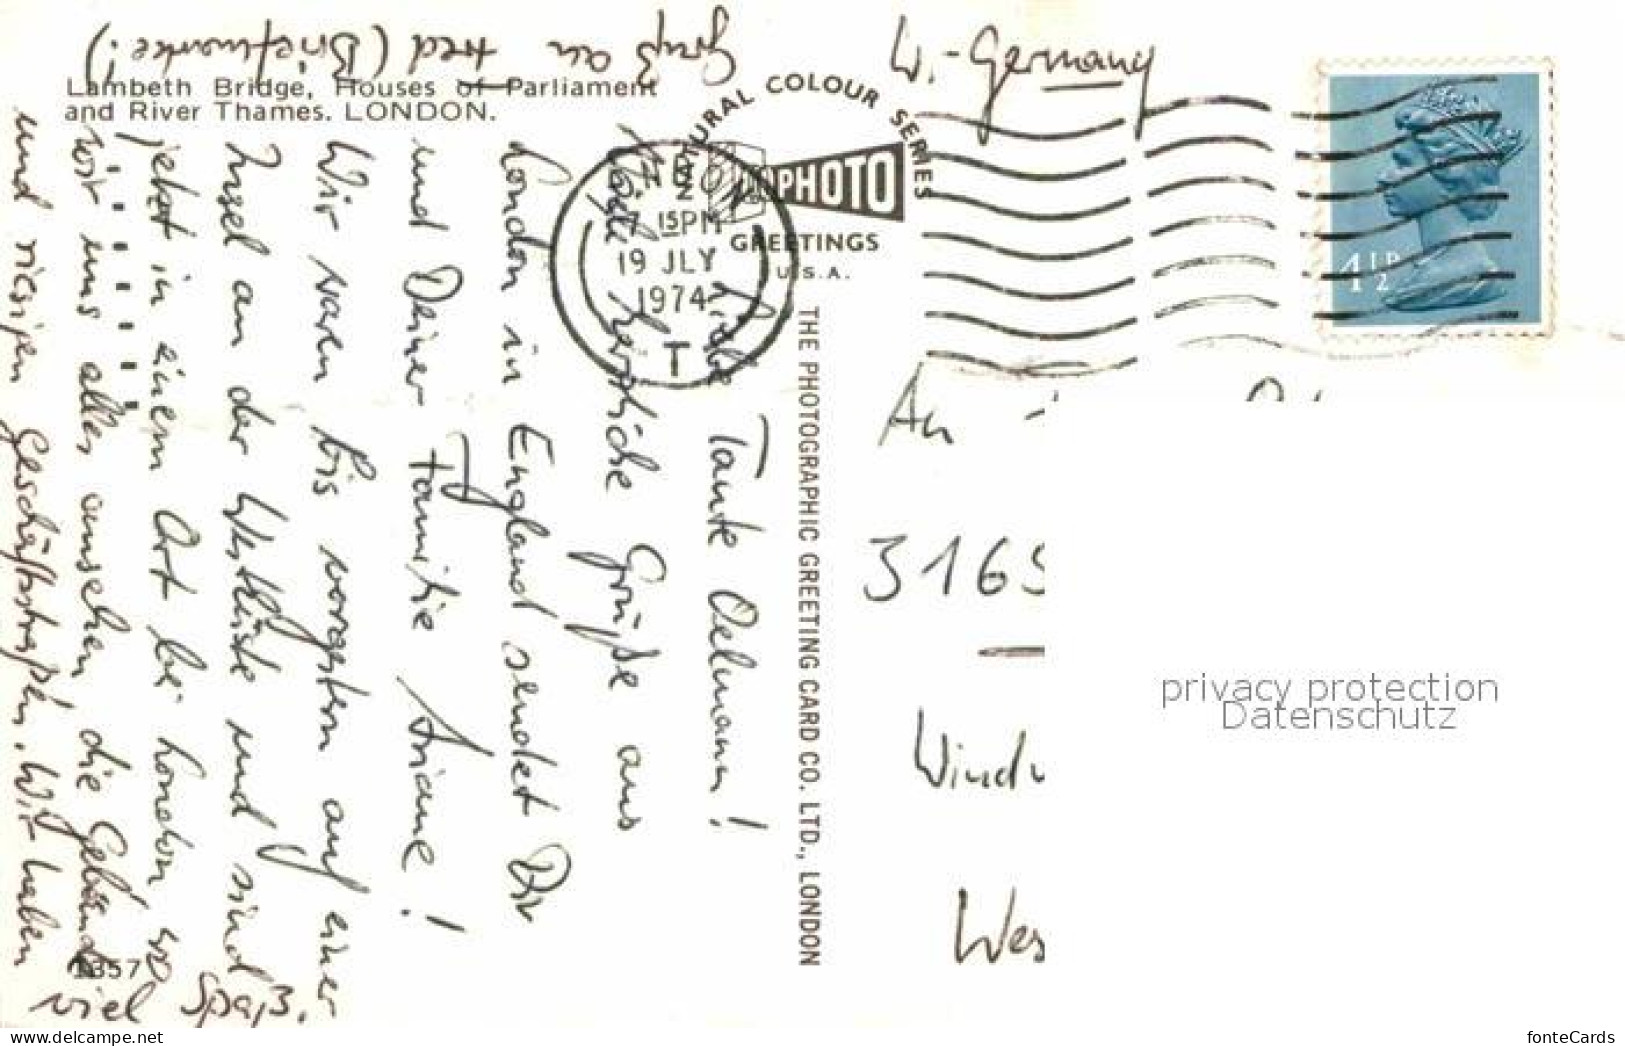 Lambeth Bridge, Houses of Parliament
and River Thames. LONDON.
Gruß an (Briefmarke!)
Liebe Tante Oelmann!
herzliche Grüße aus
London in England sendet Dir
und Deiner Familie Ariane!
Wir waren bis vorgestern auf einer
Insel an der Westküste und sind
jetzt in einem Ort bei London, wo
wir uns alles ansehen, die Gebäude
und riesigen Geschäftsstraßen. Wir haben
viel Spaß.
1357
NATURAL COLOUR SERIES
PHOTO
GREETINGS
U.S.A.
7 15PM
19 JLY
1974
T
THE PHOTOGRAPHIC GREETING CARD CO. LTD., LONDON
W.-Germany
4½P
An
3165
Wes
privacy protection
Datenschutz
www.delcampe.net
fonteCards